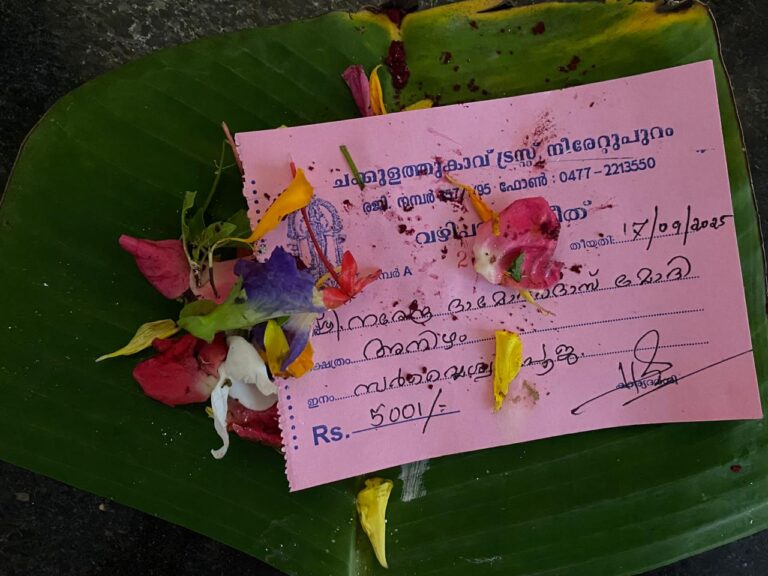 ചക്കുളത്തുകാവ് ട്രസ്റ്റ്, നീരേറ്റുപുറം
രജി. നമ്പർ 95 ഫോൺ : 0477-2213550
തീയതി 17/09/2025
നമ്പർ A
ശ്രീ. നരേന്ദ്ര ദാമോദർദാസ് മോദി
നക്ഷത്രം അനിഴം
ഇനം പൂജ.
Rs. 5001/-